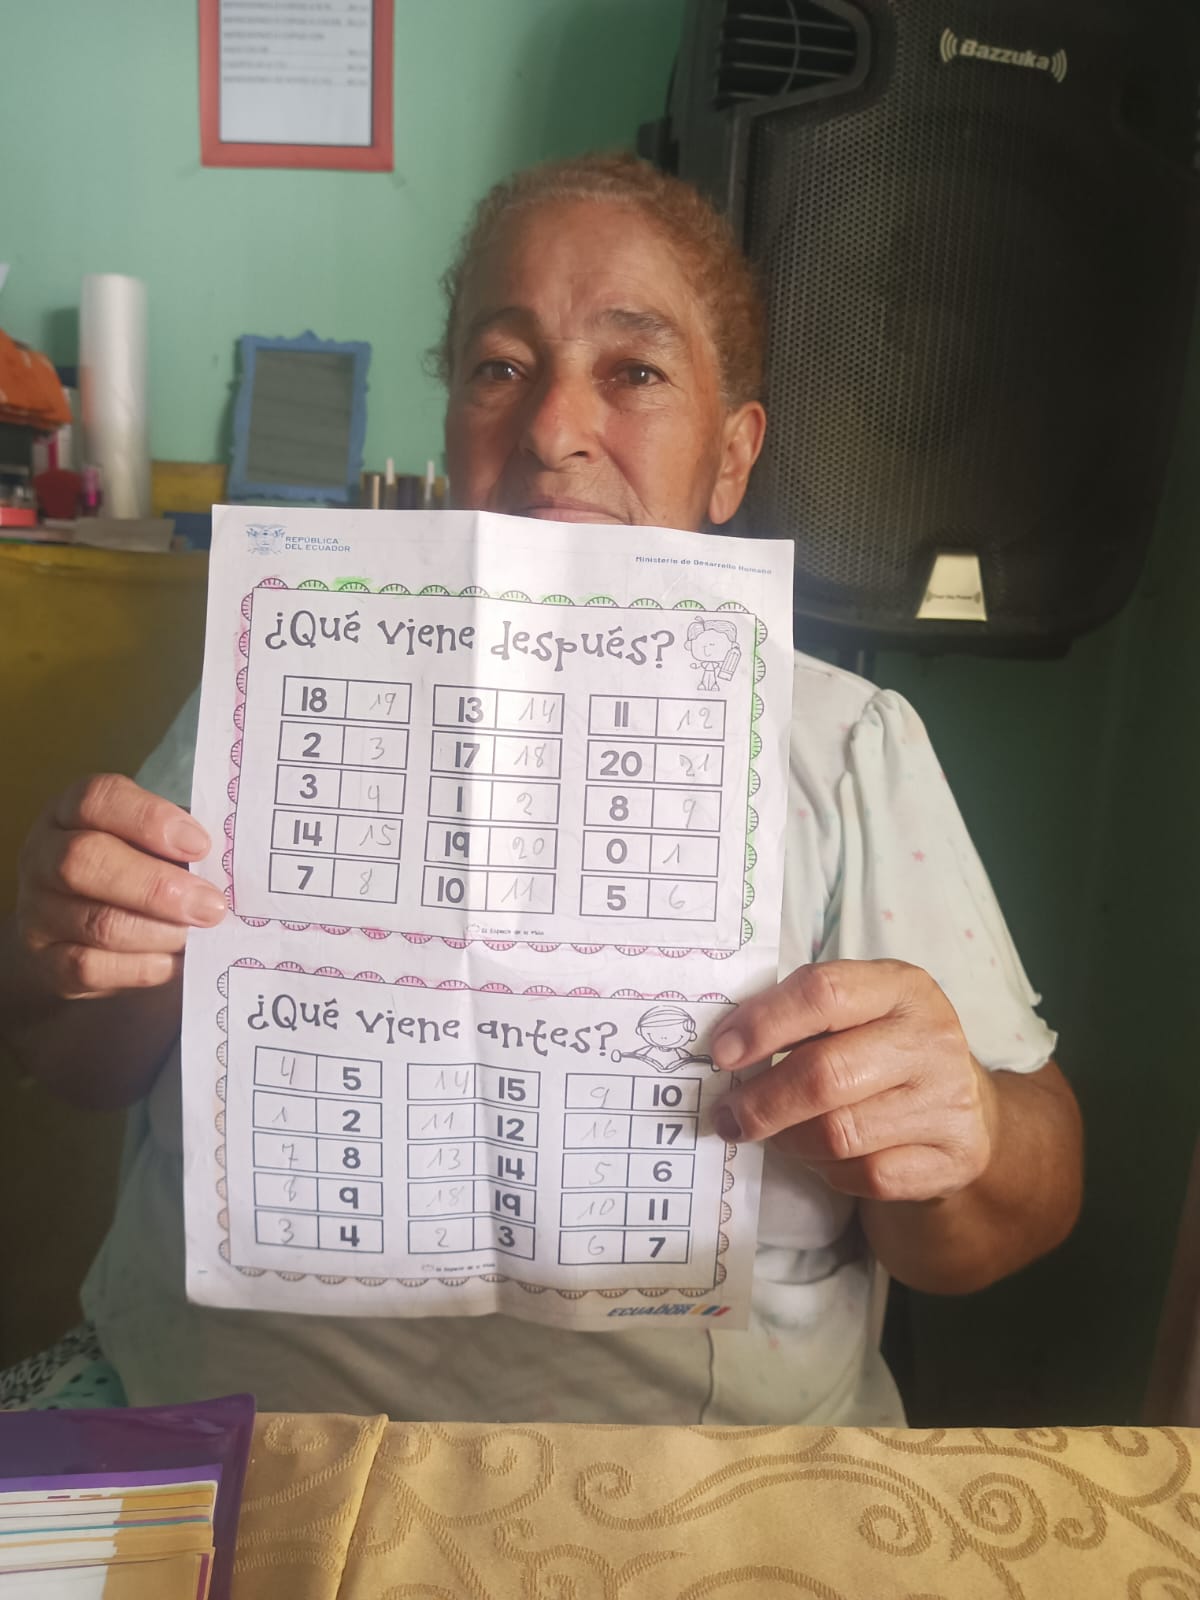 Bazzuka
REPÚBLICA
DEL ECUADOR
Ministerio de Desarrollo Humano
¿Qué viene después?
18 19 13 14 11 12
2 3 17 18 20 21
3 4 1 2 8 9
14 15 19 20 0 1
7 8 10 11 5 6
¿Qué viene antes?
4 5 14 15 9 10
1 2 11 12 16 17
7 8 13 14 5 6
8 9 18 19 10 11
3 4 2 3 6 7
ECUADOR